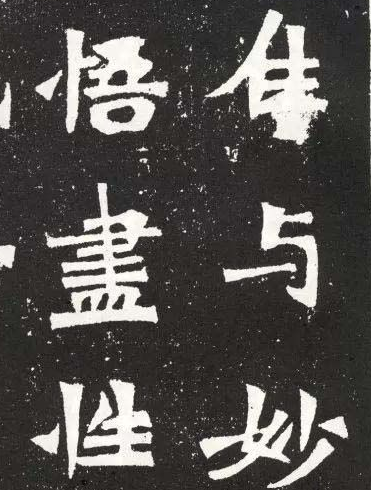 与妙
悟盡性